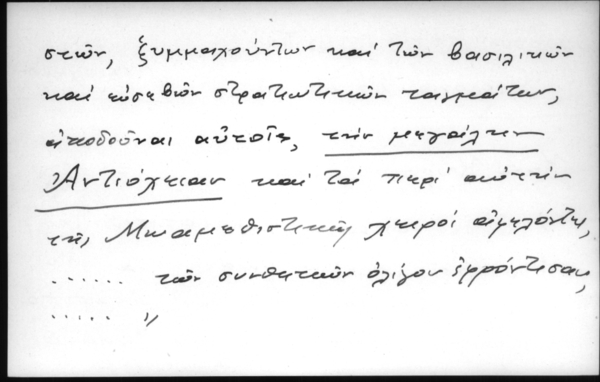 στῶν, ξυμμαχούντων καί τῶν βασιλικῶν
καί εὐσεβῶν στρατιωτικῶν ταγμάτων,
ἀποδοῦναι αὐτοῖς, τήν μεγάλην
Ἀντιόχειαν καί τά περί αὐτήν
τῆς Μωαμεθιστικῆς χειρός ἀφελόντες,
...... τῶν συνθηκῶν ὀλίγον ἐφρόντισαν,
..... "